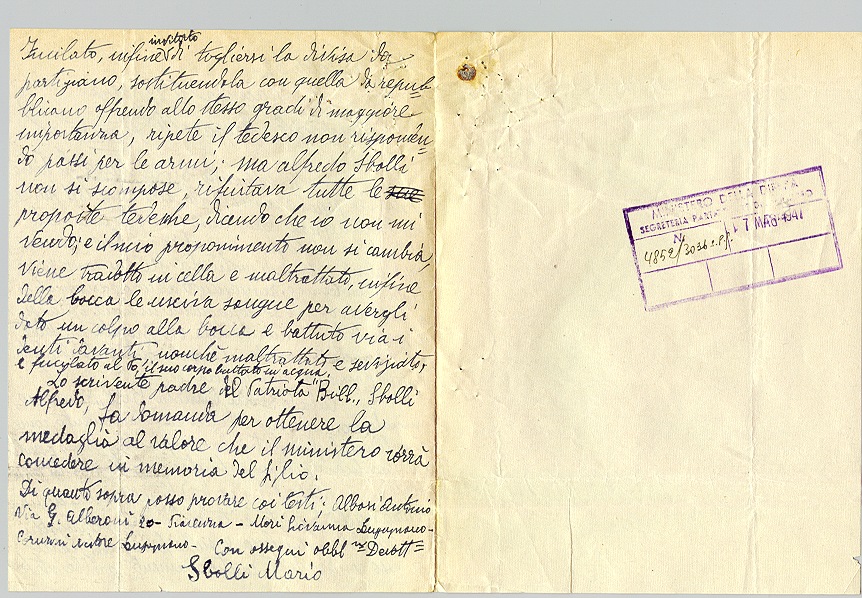 Fucilato, infine invitato di togliersi la divisa da
partigiano, sostituendola con quella da repub=
blicano offrendo allo stesso gradi di maggiore
importanza, ripete il tedesco non risponden=
do passi per le armi; ma alfredo Sbolli
non si scompose, rifiutava tutte le sue
proposte tedesche, dicendo che io non mi
vendo; e il mio proponimento non si cambia,
viene tradotto in cella e maltrattato, infine
della bocca le usciva sangue per avergli
dato un colpo alla bocca e battuto via i
denti davanti, nonchè maltrattato e seviziato,
e fucilato al Po, il suo corpo buttato in acqua.
Lo scrivente padre del Patriota "Bill", Sbolli
Alfredo, fa domanda per ottenere la
medaglia al valore che il ministero vorrà
concedere in memoria del filio.
Di quanto sopra posso provare coi testi: Albasi Antonio
Via G. Alberoni 20 - Piacenza - Mori Giovanna Lugagnano -
Lugagnano - Con ossequi obbl mo Devott =
Sbolli Mario
MINISTERO DELLA DIFESA
SEGRETERIA
17 MAG 1947
N.
4852/3036